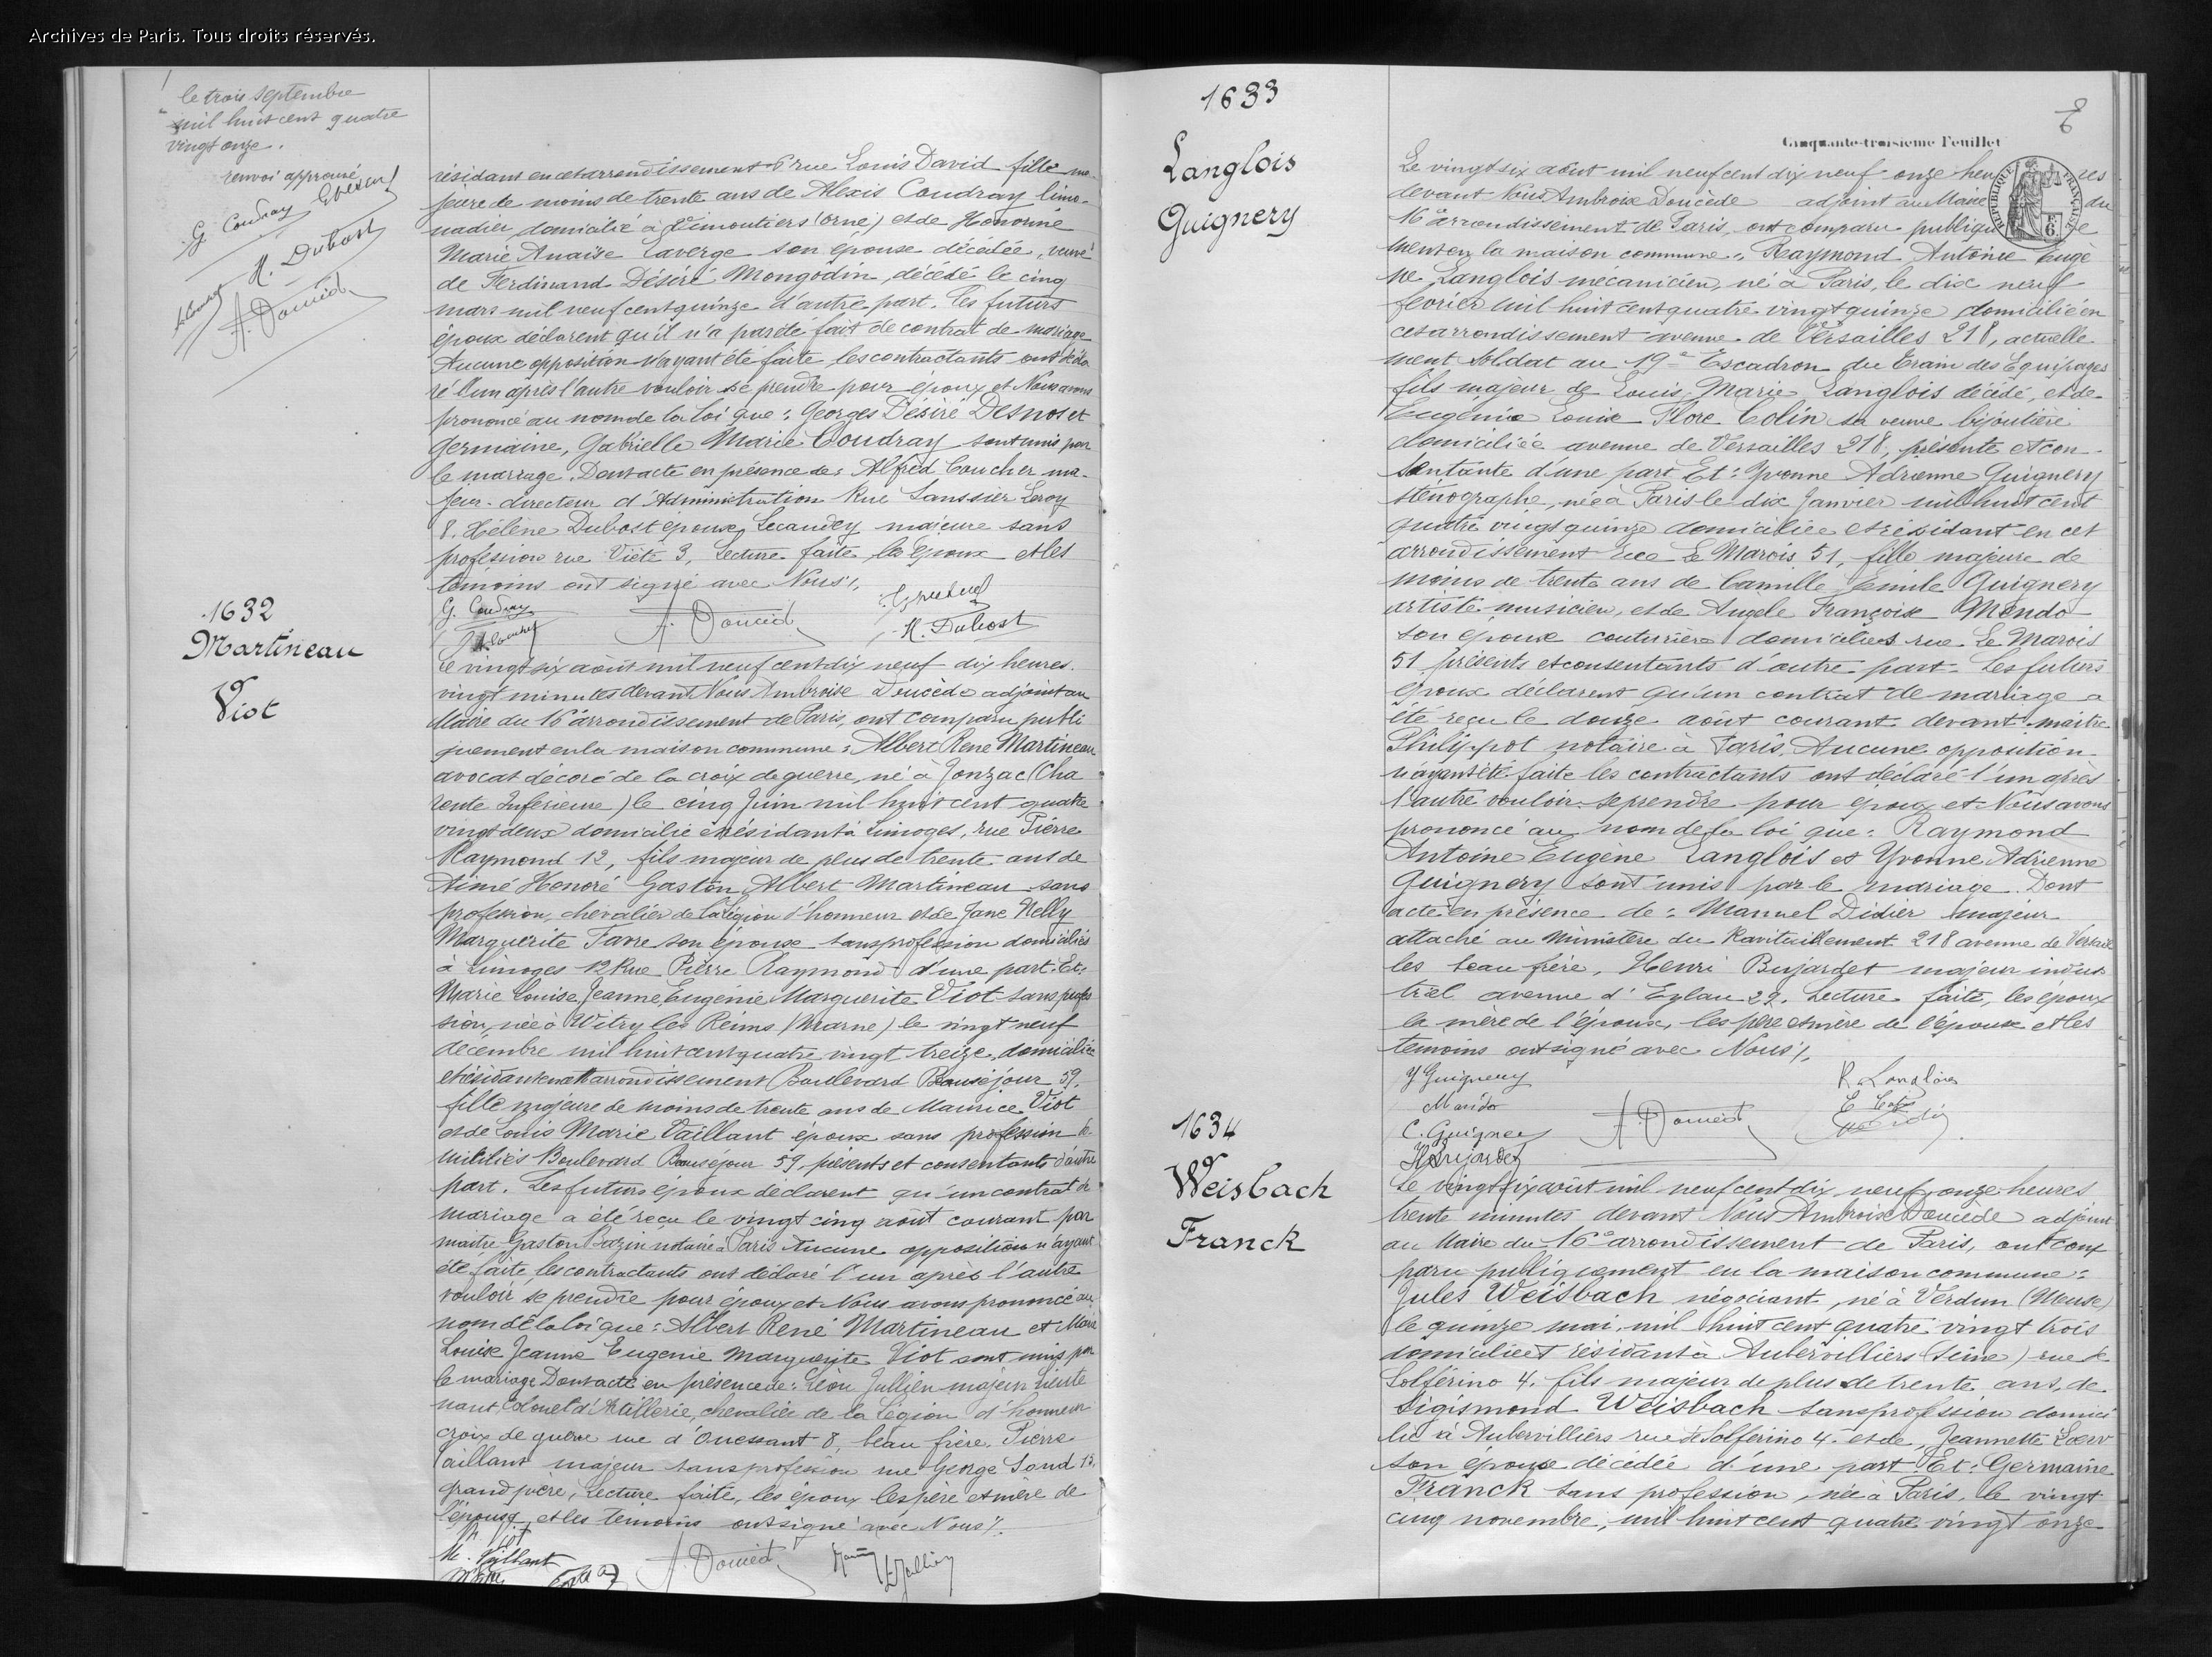 Archives de Paris. Tous droits réservés.
le trois septembre
mil huit cent quatre
vingt onze.
renvoi approuvé
G. Coudray
H. Dubost
A. Doucèd
résidant en cet arrondissement 6 rue Louis David fille ma-
jeure de moins de trente ans de Alexis Coudray limo-
nadier, domicilié à Vimoutiers (Orne) et de Honorine
Marie Anaïse Laverge son épouse décédée, veuve
de Ferdinand Désiré Mongodin, décédé le cinq
mars mil neuf cent quinze d'autre part. Les futurs
époux déclarent qu'il n'a pas été fait de contrat de mariage
Aucune opposition n'ayant été faite, les contractants ont décla-
ré l'un après l'autre vouloir se prendre pour époux et Nous avons
prononcé au nom de la loi que : Georges Désiré Desnos et
Germaine, Gabrielle Marie Coudray sont unis par
le mariage. Dont acte en présence de : Alfred Coucher ma-
jeur - directeur d'Administration Rue Saussier Leroy
8. Hélène Dubost épouse Lecaudey majeure sans
profession rue Viète 3, Lecture faite, les époux et les
témoins ont signé avec Nous ./.
G. Coudray
A. Doucèd
H. Dubost
1632
Martineau
Viot
Le vingt six août mil neuf cent dix neuf dix heures
vingt minutes devant Nous Ambroise Doucède adjoint au
Maire du 16e arrondissement de Paris, ont comparu publi
quement en la maison commune : Albert René Martineau
avocat décoré de la croix de guerre, né à Jonzac (Cha
rente Inférieure) le cinq Juin mil huit cent quatre
vingt deux domicilié et résidant à Limoges, rue Pierre
Raymond 12, fils majeur de plus de trente ans de
Aimé Honoré Gaston Albert Martineau sans
profession, chevalier de la Légion d'honneur et de Jane Nelly
Marguerite Favre son épouse sans profession domiciliés
à Limoges 12 Rue Pierre Raymond d'une part. Et :
Marie Louise Jeanne Eugénie Marguerite Viot sans profes
sion, née à Witry les Reims (Marne) le vingt neuf
décembre mil huit cent quatre vingt treize, domiciliée
et résidant en cet arrondissement Boulevard Beauséjour 59,
fille majeure de moins de trente ans de Maurice Viot
et de Louis Marie Vaillant époux sans profession do
miciliés Boulevard Beauséjour 59 présents et consentants d'autre
part. Les futurs époux déclarent qu'un contrat de
mariage a été reçu le vingt cinq août courant par
maître Gaston Bazin notaire à Paris Aucune opposition n'ayant
été faite, les contractants ont déclaré l'un après l'autre
vouloir se prendre pour époux et Nous avons prononcé au
nom de la loi que : Albert René Martineau et Marie
Louise Jeanne Eugénie Marguerite Viot sont unis par
le mariage Dont acte en présence de : Léon Jullien majeur lieute
nant Colonel d'Artillerie, chevalier de la Légion d'honneur
croix de guerre rue d'Ouessant 8, beau frère. Pierre
Vaillant majeur sans profession rue George Sand 13,
grand père, Lecture faite, les époux les père et mère de
l'épouse, et les témoins ont signé avec Nous ./.
M. Viot
M. Vaillant
A. Doucèd
L. Jullien
1633
Langlois
Guignery
8
6
Cinquante-troisième Feuillet
RÉPUBLIQUE FRANÇAISE
Le vingt six août mil neuf cent dix neuf onze heures
devant Nous Ambroise Doucède adjoint au Maire du
16e arrondissement de Paris, ont comparu publique
ment en la maison commune : Raymond Antoine Eugè
ne Langlois mécanicien, né à Paris, le dix neuf
février mil huit cent quatre vingt quinze, domicilié en
cet arrondissement avenue de Versailles 218, actuelle
ment soldat au 19e Escadron du Train des Equipages
fils majeur de Louis Marie Langlois décédé, et de
Eugénie Louise Flore Colin sa veuve bijoutière
domiciliée avenue de Versailles 218, présente et con-
sentante d'une part Et : Yvonne Adrienne Guignery
sténographe, née à Paris le dix Janvier mil huit cent
quatre vingt quinze domiciliée et résidant en cet
arrondissement rue Le Marois 51, fille majeure de
moins de trente ans de Camille Emile Guignery
artiste musicien, et de Angèle Françoise Mondo
son épouse couturière domiciliés rue Le Marois
51 présents et consentants d'autre part. Les futurs
époux déclarent qu'un contrat de mariage a
été reçu le douze août courant devant maître
Philippot notaire à Paris. Aucune opposition
n'ayant été faite les contractants ont déclaré l'un après
l'autre vouloir se prendre pour époux et Nous avons
prononcé au nom de la loi que : Raymond
Antoine Eugène Langlois et Yvonne Adrienne
Guignery sont unis par le mariage. Dont
acte en présence de : Manuel Didier majeur
attaché au Ministère du Ravitaillement 218 avenue de Versail
les beau frère, Henri Bujardet majeur indus
triel avenue d'Eylau 29. Lecture faite, les époux
la mère de l'époux, les père et mère de l'épouse et les
témoins ont signé avec Nous ./.
Y Guignery
R. Langlois
Mondo
C. Guignery
A. Doucèd
H Bujardet
1634
Weisbach
Franck
Le vingt six août mil neuf cent dix neuf onze heures
trente minutes devant Nous Ambroise Doucède adjoint
au Maire du 16e arrondissement de Paris, ont com
paru publiquement en la maison commune :
Jules Weisbach négociant, né à Verdun (Meuse)
le quinze mai, mil huit cent quatre vingt trois
domicilié et résidant à Aubervilliers (Seine) rue de
Solférino 4. fils majeur de plus de trente ans, de
Sigismond Weisbach sans profession domici
lié à Aubervilliers rue de Solférino 4. et de Jeannette Loew
son épouse décédée d'une part Et : Germaine
Franck sans profession, née à Paris, le vingt
cinq novembre, mil huit cent quatre vingt onze